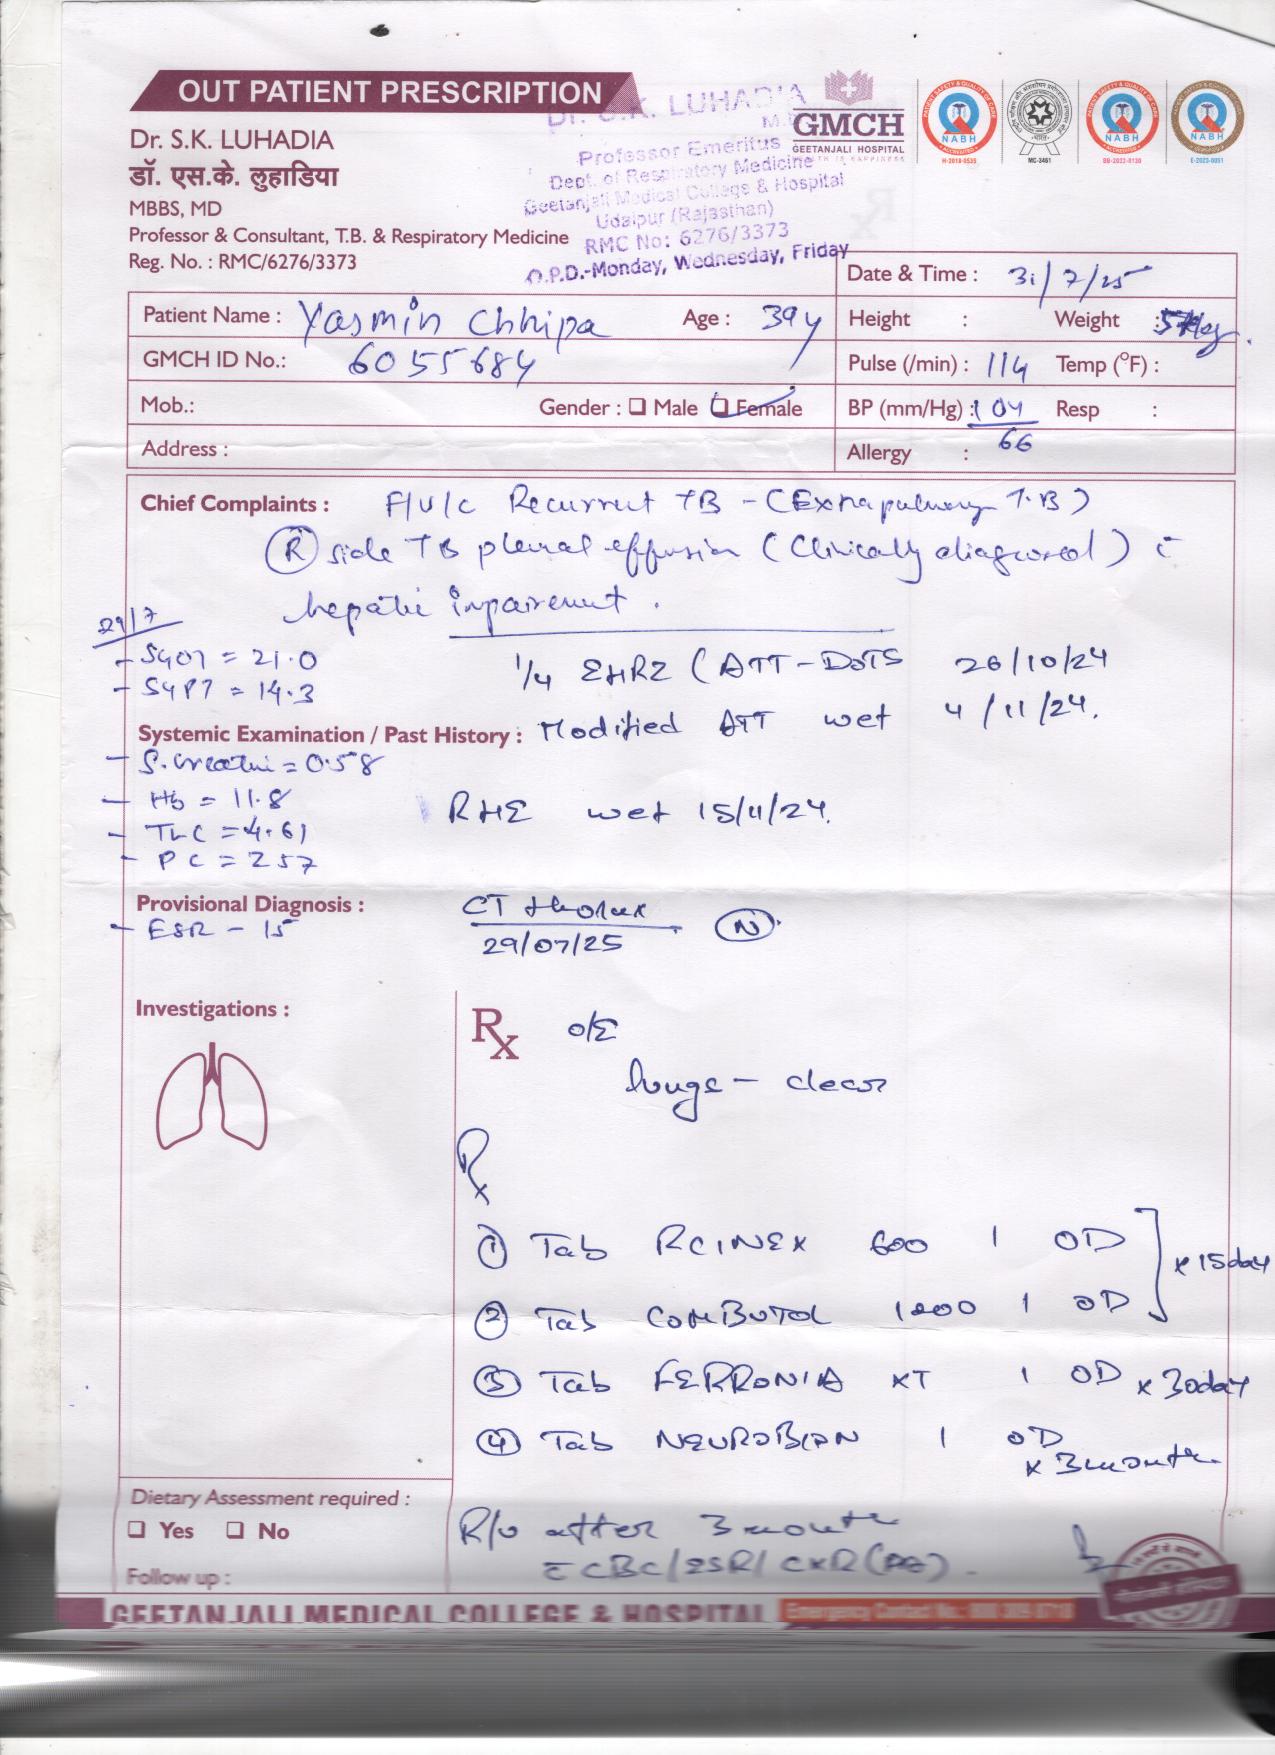 OUT PATIENT PRESCRIPTION
Dr. S.K. LUHADIA
डॉ. एस.के. लुहाडिया
MBBS, MD
Professor & Consultant, T.B. & Respiratory Medicine
Reg. No. : RMC/6276/3373
Dr. S.K. LUHADIA
Professor Emeritus
Dept. of Respiratory Medicine
Geetanjali Medical College & Hospital
Udaipur (Rajasthan)
RMC No: 6276/3373
O.P.D.-Monday, Wednesday, Friday
GMCH
GEETANJALI HOSPITAL
NABH
H-2018-0535
MC-3461
NABH
BB-2022-0130
NABH
E-2023-0051
Date & Time : 31/7/25
Patient Name : Yasmin Chhipa Age : 39y
Height : Weight : kg.
GMCH ID No.: 6055684
Pulse (/min) : 114 Temp (°F) :
Mob.: Gender : Male Female
BP (mm/Hg) : 104/66 Resp :
Address :
Allergy :
Chief Complaints : F/U/C Recurrent TB - (Extrapulmonary T.B)
(R) side TB pleural effusion (Clinically diagnosed) c̄
hepatic impairement.
29/7
- SGOT = 21.0
- SGPT = 14.3
1/4 EHRZ (ATT - DOTS 26/10/24
Systemic Examination / Past History : Modified ATT wef 4/11/24.
- S. Creatini = 0.58
- Hb = 11.8
- TLC = 4.61
- PC = 257
RHE wef 15/11/24.
Provisional Diagnosis :
- ESR - 15
CT thorax
29/07/25 (N).
Investigations :
Rx o/E
lungs - clear
Rx
① Tab RCINEX 600 1 OD
② Tab COMBUTOL 1200 1 OD
x 15day
③ Tab FERRONIA XT 1 OD x 30day
④ Tab NEUROBION 1 OD
x 3 month
Dietary Assessment required :
Yes No
Follow up :
R/v after 3 month
c̄ CBC/ESR/CXR (PA).
GEETANJALI MEDICAL COLLEGE & HOSPITAL